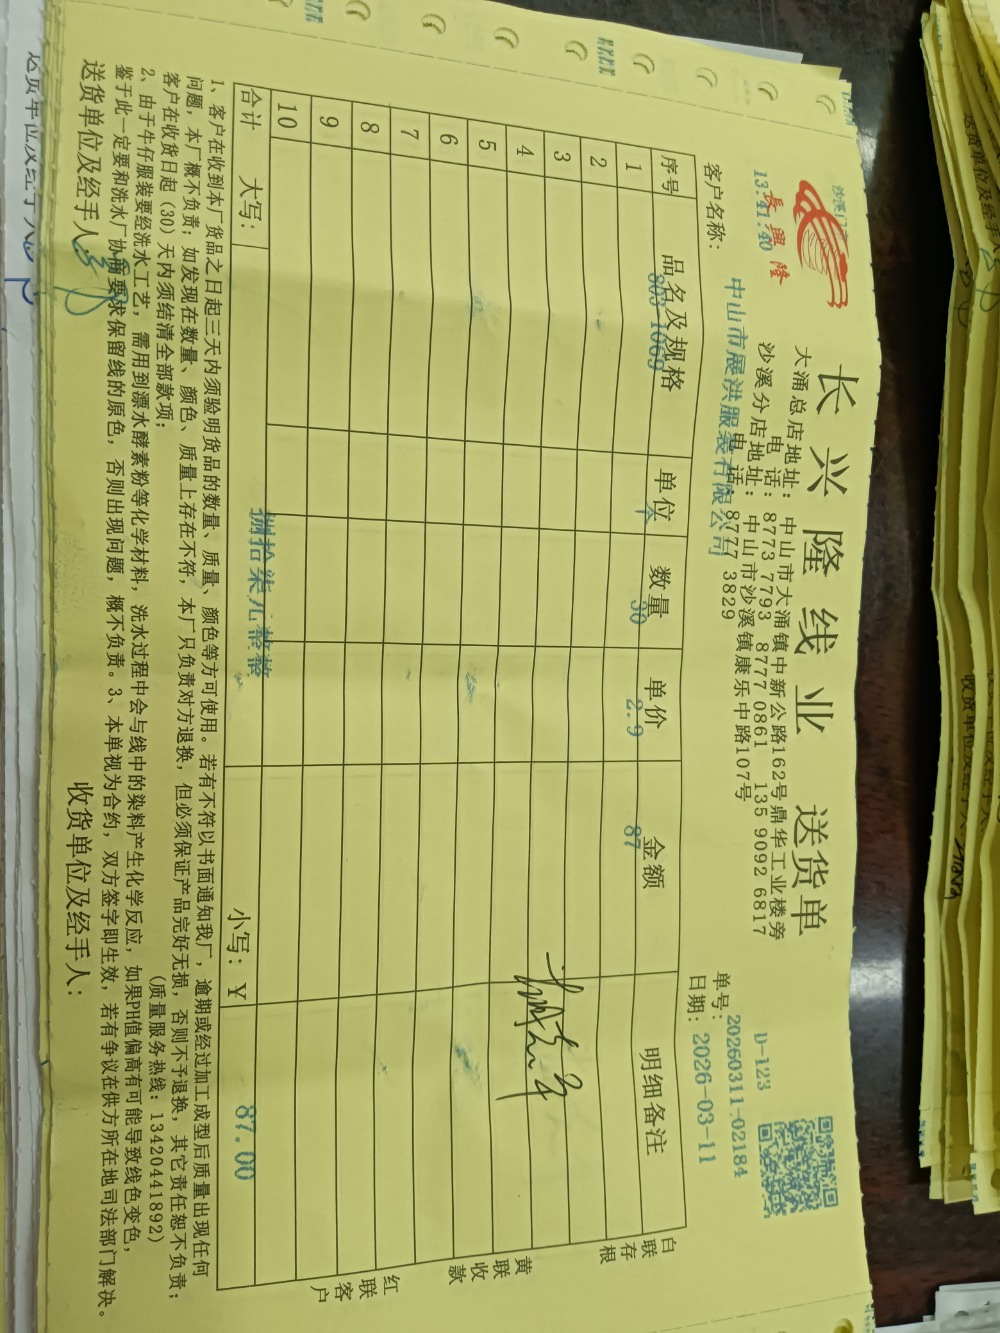 长兴隆线业 送货单
長興隆
13:41:40
大涌总店地址: 中山市大涌镇中新公路162号鼎华工业楼旁
电 话: 8773 7793 8777 0861 135 9092 6817
沙溪分店地址: 中山市沙溪镇康乐中路107号
电 话: 8777 3829
D-123
单号: 20260311-02184
客户名称: 中山市展洪服装有限公司
日期: 2026-03-11
序号 品名及规格 单位 数量 单价 金额 明细备注
1 803-1069 个 30 2.9 87
2
3
4
5
6
7
8
9
10
合计 大写: 捌拾柒元整 小写: Y 87.00
白联存根
黄联收款
红联客户
1、客户在收到本厂货品之日起三天内须验明货品的数量、质量、颜色等方可使用。若有不符以书面通知我厂,逾期或经过加工成型后质量出现任何
问题,本厂概不负责;如发现在数量、颜色、质量上存在不符,本厂只负责对方退换,但必须保证产品完好无损,否则不予退换,其它责任恕不负责;
客户在收货日起(30)天内须结清全部款项; (质量服务热线: 13420441892)
2、由于牛仔服装要经洗水工艺,需用到漂水酵素粉等化学材料,洗水过程中会与线中的染料产生化学反应,如果PH值偏高有可能导致线色变色,
鉴于此一定要和洗水厂协商要求保留线的原色,否则出现问题,概不负责。3、本单视为合约,双方签字即生效,若有争议在供方所在地司法部门解决。
送货单位及经手人: 收货单位及经手人:
送货单位及经手人